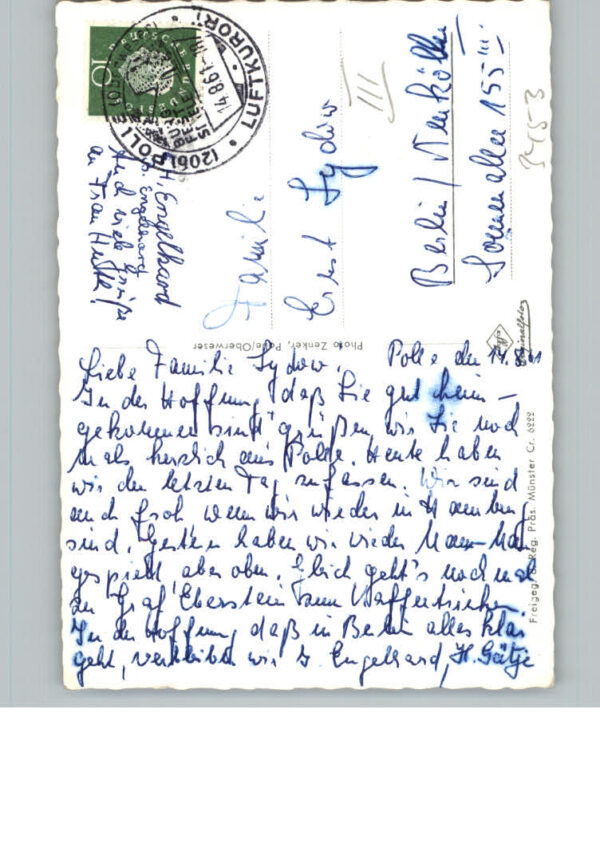 Liebe Familie Sydow, Polle den 14.8.61
In der Hoffnung, daß Sie gut heim-
gekommen sind, grüßen wir Sie noch
mals herzlich aus Polle. Heute haben
wir den letzten Tag zu fassen. Wir sind
auch froh wenn wir wieder in Hamburg
sind. Gestern haben wir wieder
gespielt, aber oben. Gleich geht's noch mal
zu Graf Eberstein zum Kaffeetrinken
In der Hoffnung, daß in Berlin alles klar
geht, verbleiben wir I. Engelhard, H. Götje
H. Engelhard
Engelhard
Auch viele Grüße
an Frau
Familie
Ernst Sydow
Berlin / Neukölln
Sonnenallee 155 III
III
3453
10
(20b) POLLE
LUFTKURORT
14.8.61
Photo Zenker, Polle/Oberweser
Originalfoto
Freigeg. d. Reg. Präs. Münster Cr. 6222